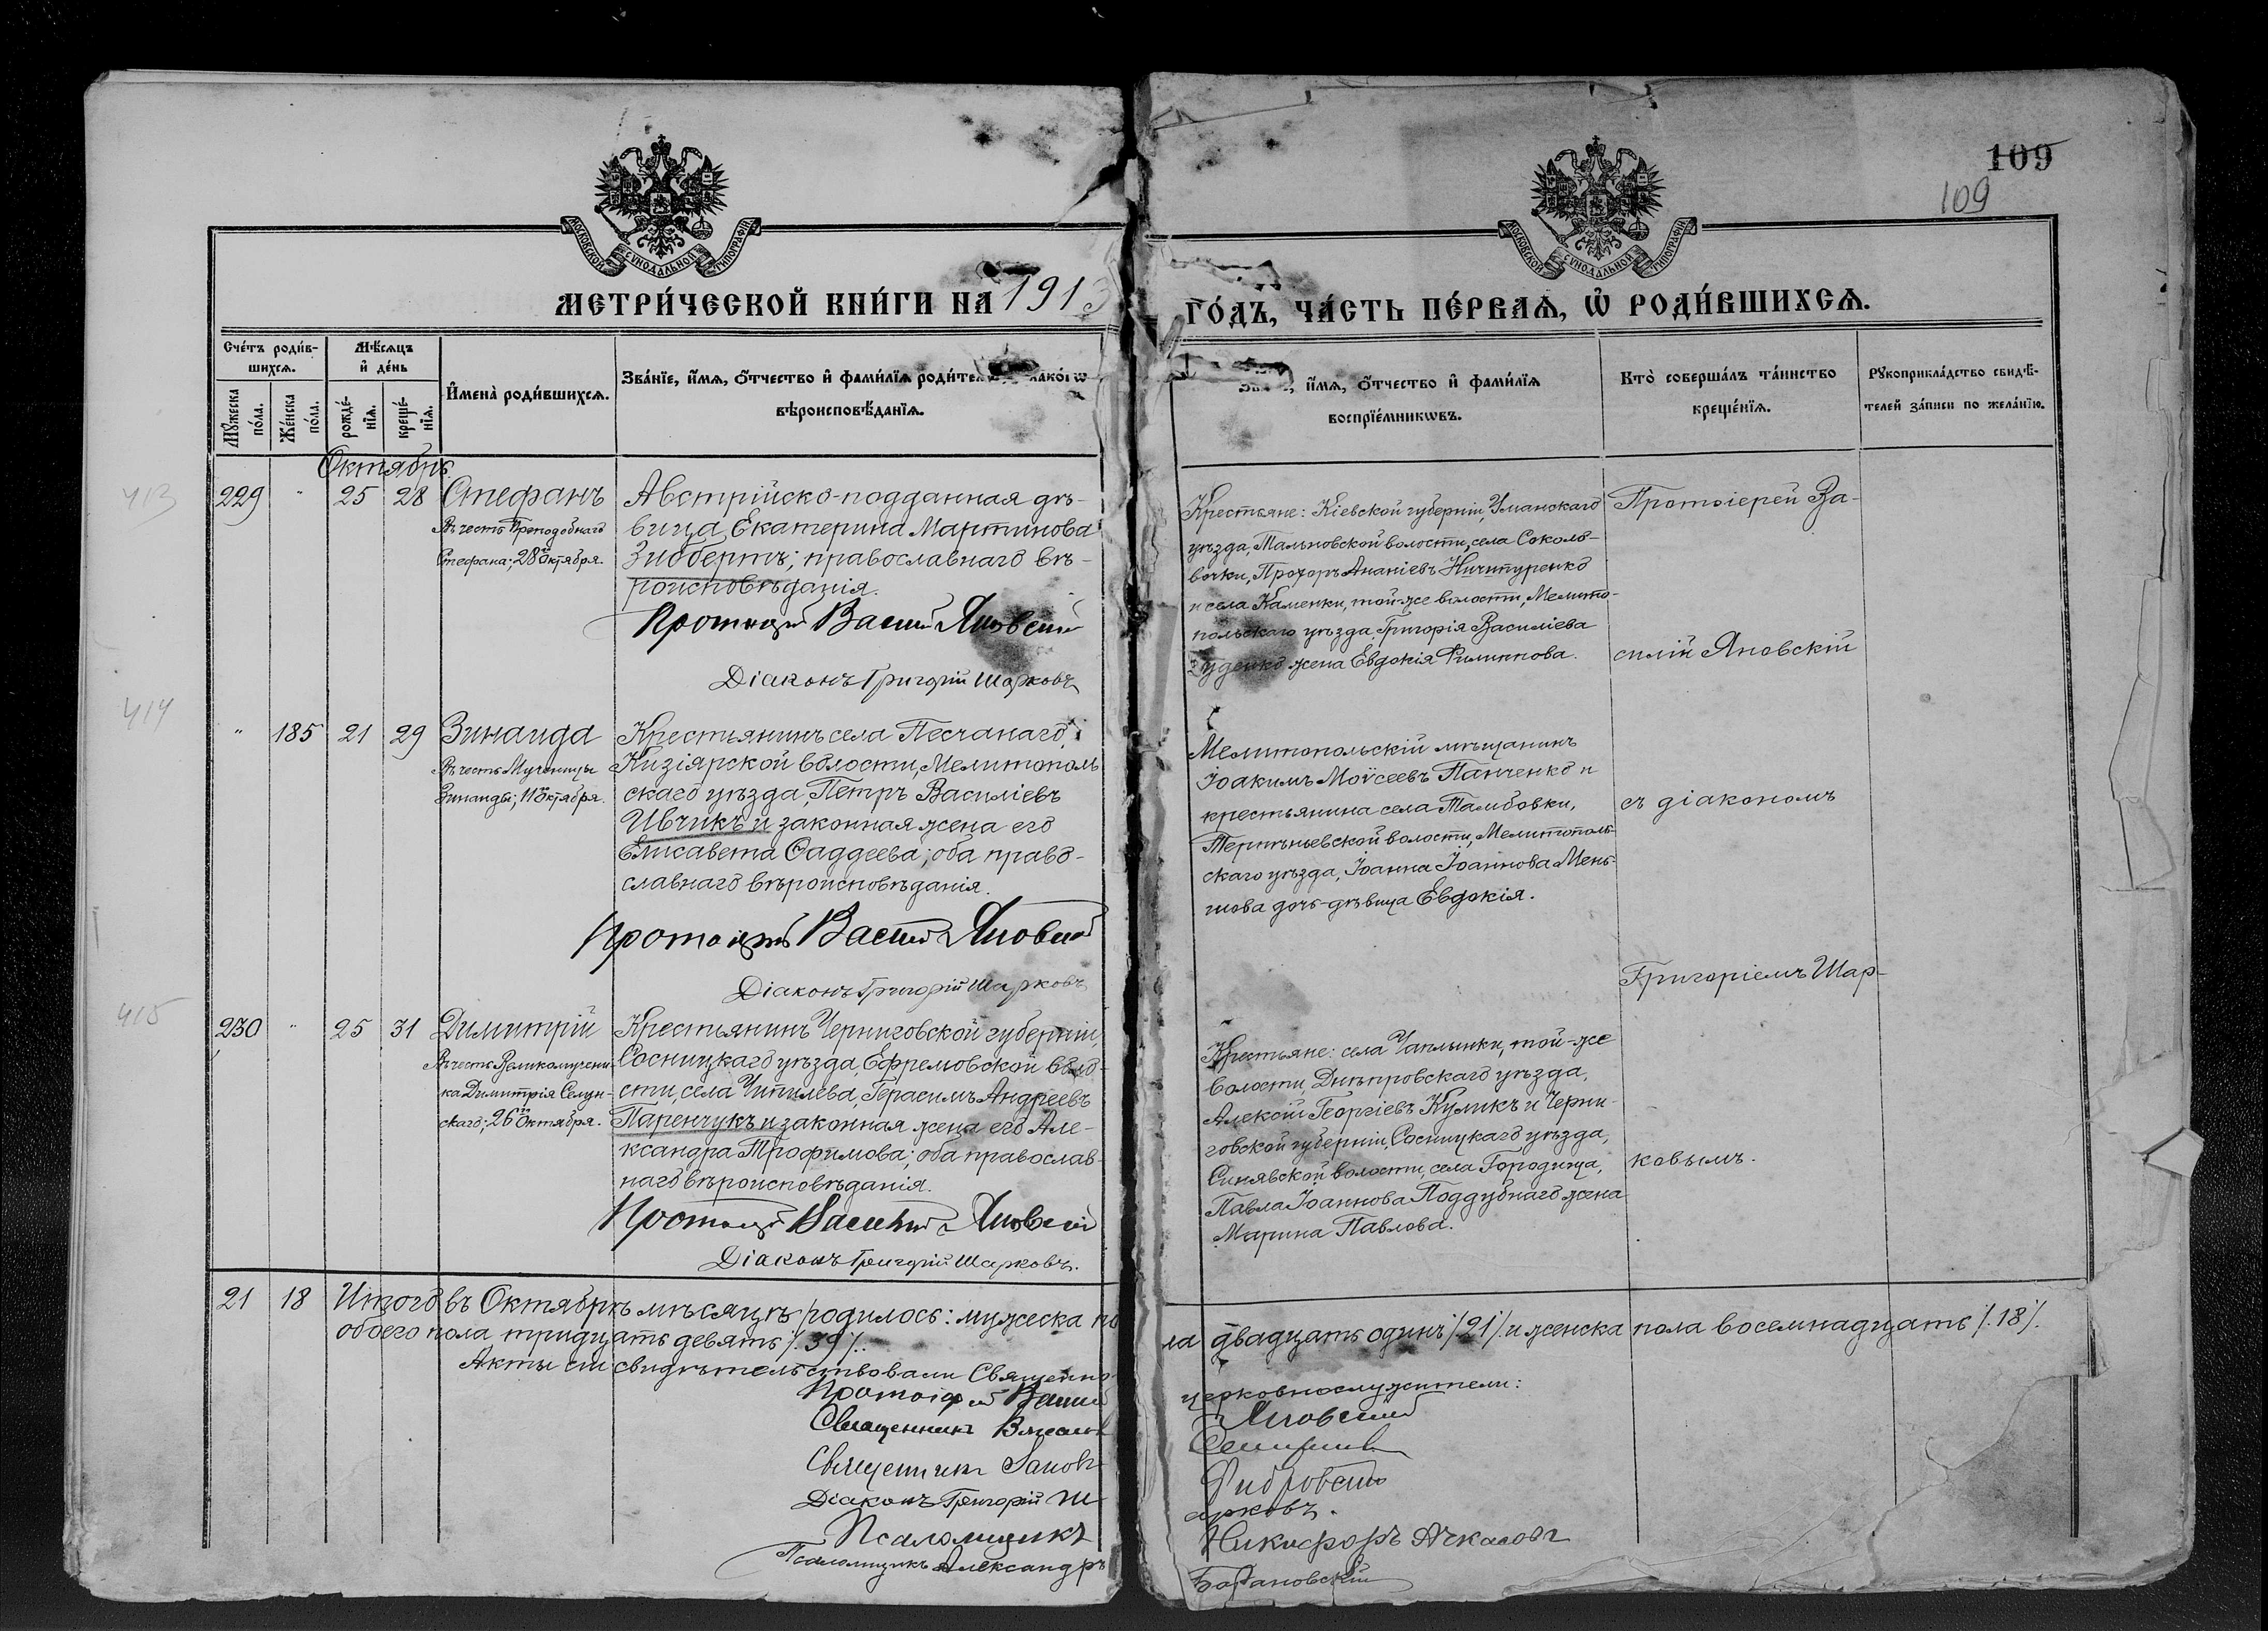 109
109
МОСКОВСКОЙ СУНОДАЛЬНОЙ ТИПОГРАФІИ
МОСКОВСКОЙ СУНОДАЛЬНОЙ ТИПОГРАФІИ
МЕТРИ́ЧЕСКОЙ КНИ́ГИ НА 1913
ГО́ДЪ, ЧА́СТЬ ПЕ́РВАѦ, Ѡ҆ РОДИ́ВШИХСѦ.
Сче́тъ роди́в-
шихсѧ.
Мѣ́сяцъ
и҆ де́нь
Мꙋ́жеска
по́ла.
Же́нска
по́ла.
рожде́-
нїѧ.
креще́-
нїѧ.
И҆мена̀ роди́вшихсѧ.
Зва́нїе, и҆́мѧ, ѻ҆́тчество и҆ фами́лїѧ роди́тел
вѣроисповѣ́данїѧ.
и҆́мѧ, ѻ҆́тчество и҆ фами́лїѧ
воспрїе́мникѡвъ.
Кто̀ соверша́лъ та́инство
креще́нїѧ.
Рꙋкоприкла́дство свидѣ́-
телей за́писи по жела́нїю.
Октябрь
413
229 " 25 28 Стефанъ
Въ честь Преподобнаго
Стефана; 28 Октября.
Австрійско-подданная дѣ-
вица, Екатерина Мартинова
Зибберть; православнаго вѣ-
роисповѣданія.
Протоіерей Василій Яновскій
Діаконъ Григорій Шарковъ
Крестьяне: Кіевской губерніи, Уманскаго
уѣзда, Тальновской волости, села Соколь-
вочки, Прохоръ Ананіевъ Ничипуренко
и села Каменки, той-же волости, Мелито-
польскаго уѣзда, Григорія Василіева
жена Евдокія Филиппова.
Протоіерей Ва-
силій Яновскій
414
" 185 21 29 Зинаида
Въ честь Мученицы
Зинаиды; 11 Октября.
Крестьянинъ села Песчанаго,
Кизіярской волости, Мелитополь
скаго уѣзда, Петръ Василіевъ
Ивчикъ и законная жена его
Елисавета Фаддеева; оба право-
славнаго вѣроисповѣданія.
Протоіерей Василій Яновскій
Діаконъ Григорій Шарковъ
Мелитопольскій мѣщанинъ
Іоакимъ Моѵсеевъ Панченко и
крестьянина села Тамбовки,
Терпѣньевской волости, Мелитополь-
скаго уѣзда, Іоанна Іоаннова Мень-
шова дочь-дѣвица Евдокія.
съ діакономъ
Григоріемъ Шар-
415
230 " 25 31 Димитрій
Въ честь Великомучени-
ка Димитрія Селун-
скаго; 26 Октября.
Крестьянинъ Черниговской губерніи,
Сосницкаго уѣзда, Ефремовской воло-
сти, села Чипилева, Герасимъ Андреевъ
Паренчукъ и законная жена его Але-
ксандра Трофимова; оба православ-
наго вѣроисповѣданія.
Протоіерей Василій Яновскій
Діаконъ Григорій Шарковъ.
Крестьяне: села Чаплинки, той-же
волости, Днѣпровскаго уѣзда,
Алексій Георгіевъ Куликъ и Черни-
говской губерніи, Сосницкаго уѣзда,
Синявской волости, села Городища,
Павла Іоаннова Поддубнаго жена
Марина Павлова.
ковымъ.
21 18 Итого въ Октябрѣ мѣсяцѣ родилось: мужеска по
ла двадцать одинъ /.21/. и женска пола восемнадцать /.18/.
обоего пола тридцать девять /.39/.
Акты сіи свидѣтельствовали Священно-
церковнослужители:
Протоіерей Василій Яновскій
Священникъ
Священникъ
Діаконъ Григорій Шарковъ.
Псаломщикъ Никифоръ Ачкасовъ
Псаломщикъ Александръ Барановскій